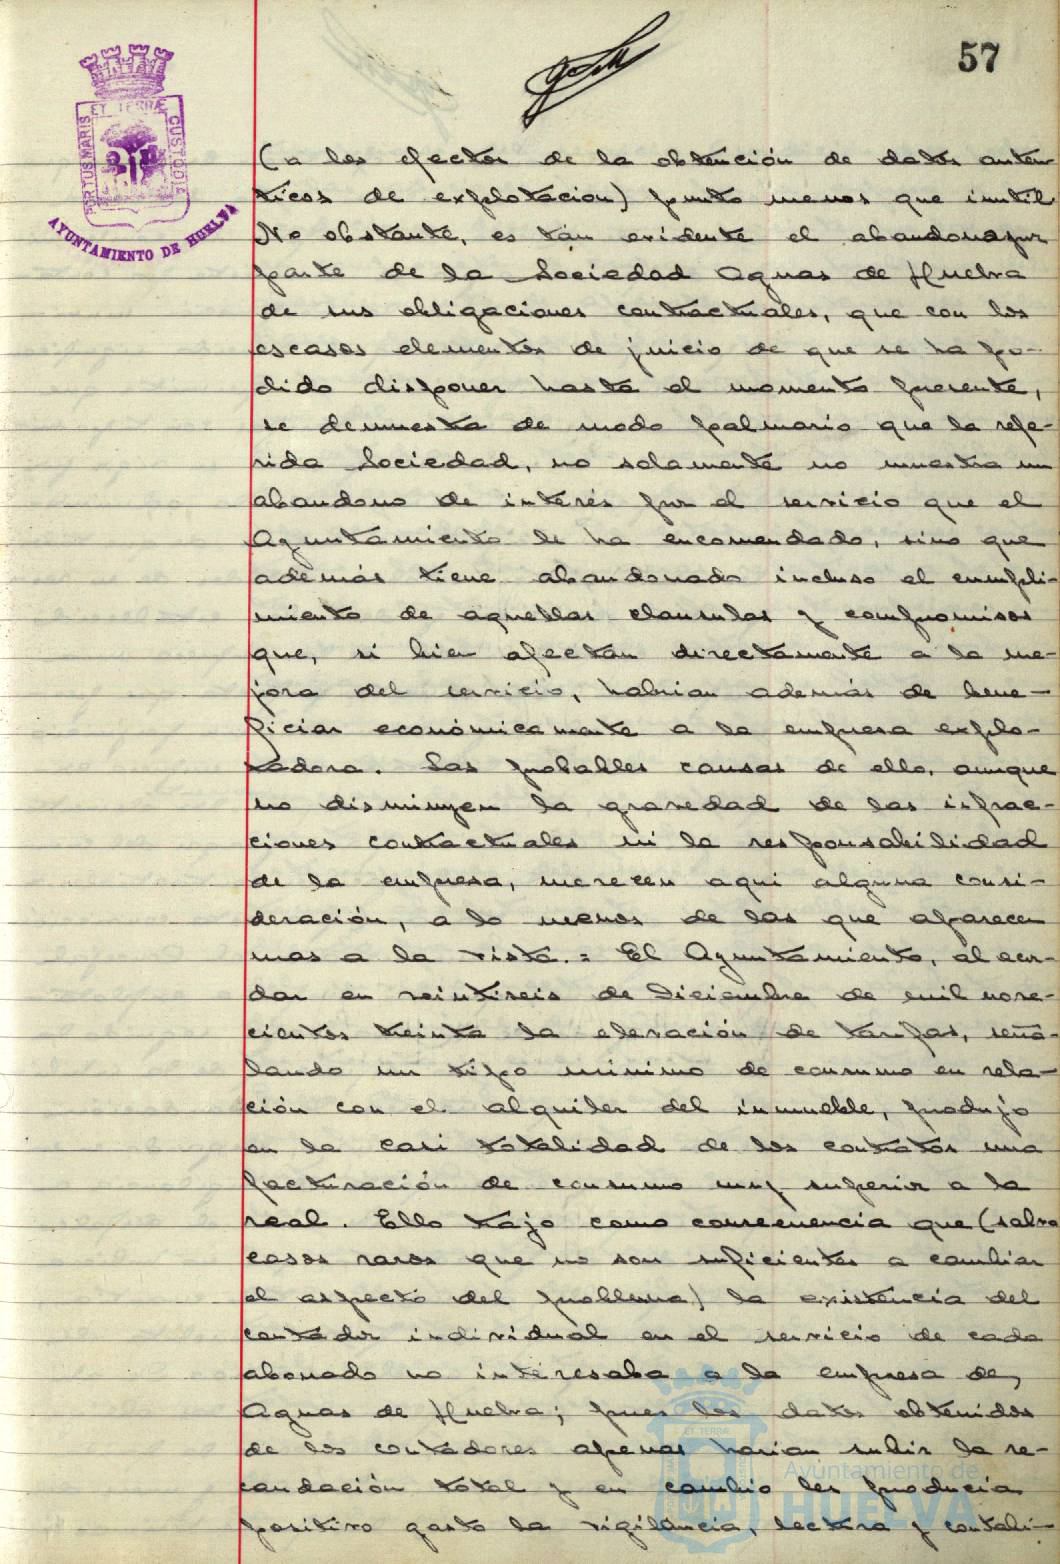 57
PORTUS MARIS ET TERRÆ CUSTODIA
AYUNTAMIENTO DE HUELVA
(a los efectos de la obtención de datos autén
ticos de explotación) punto menos que inutil
No obstante, es tan evidente el abandono por
parte de la Sociedad Aguas de Huelva
de sus obligaciones contractuales, que con los
escasos elementos de juicio de que se ha po-
dido disponer hasta el momento presente,
se demuestra de modo palmario que la refe-
rida Sociedad, no solamente no muestra un
abandono de interés por el servicio que el
Ayuntamiento le ha encomendado, sino que
además tiene abandonado incluso el cumpli-
miento de aquellas clausulas y compromisos
que, si bien afectan directamente a la me-
jora del servicio, habrian además de bene-
ficiar económicamente a la empresa explo-
tadora. Las probables causas de ello, aunque
no disminuyen la gravedad de las infrac-
ciones contractuales ni la responsabilidad
de la empresa, merecen aqui alguna consi-
deración, a lo menos de las que aparecen
mas a la vista. = El Ayuntamiento, al acor-
dar en veintiseis de Diciembre de mil nove-
cientos treinta la elevación de tarifas, seña-
lando un tipo minimo de consumo en rela-
ción con el alquiler del inmueble, produjo
en la casi totalidad de los contratos una
facturación de consumo muy superior a la
real. Ello trajo como consecuencia que (salvo
casos raros que no son suficientes a cambiar
el aspecto del problema) la existencia del
contador individual en el servicio de cada
abonado no interesaba a la empresa de
Aguas de Huelva; pues los datos obtenidos
de los contadores apenas harian subir la re-
caudación total y en cambio les producia
positivo gasto la vigilancia, lectura y contabi-
Ayuntamiento de
HUELVA